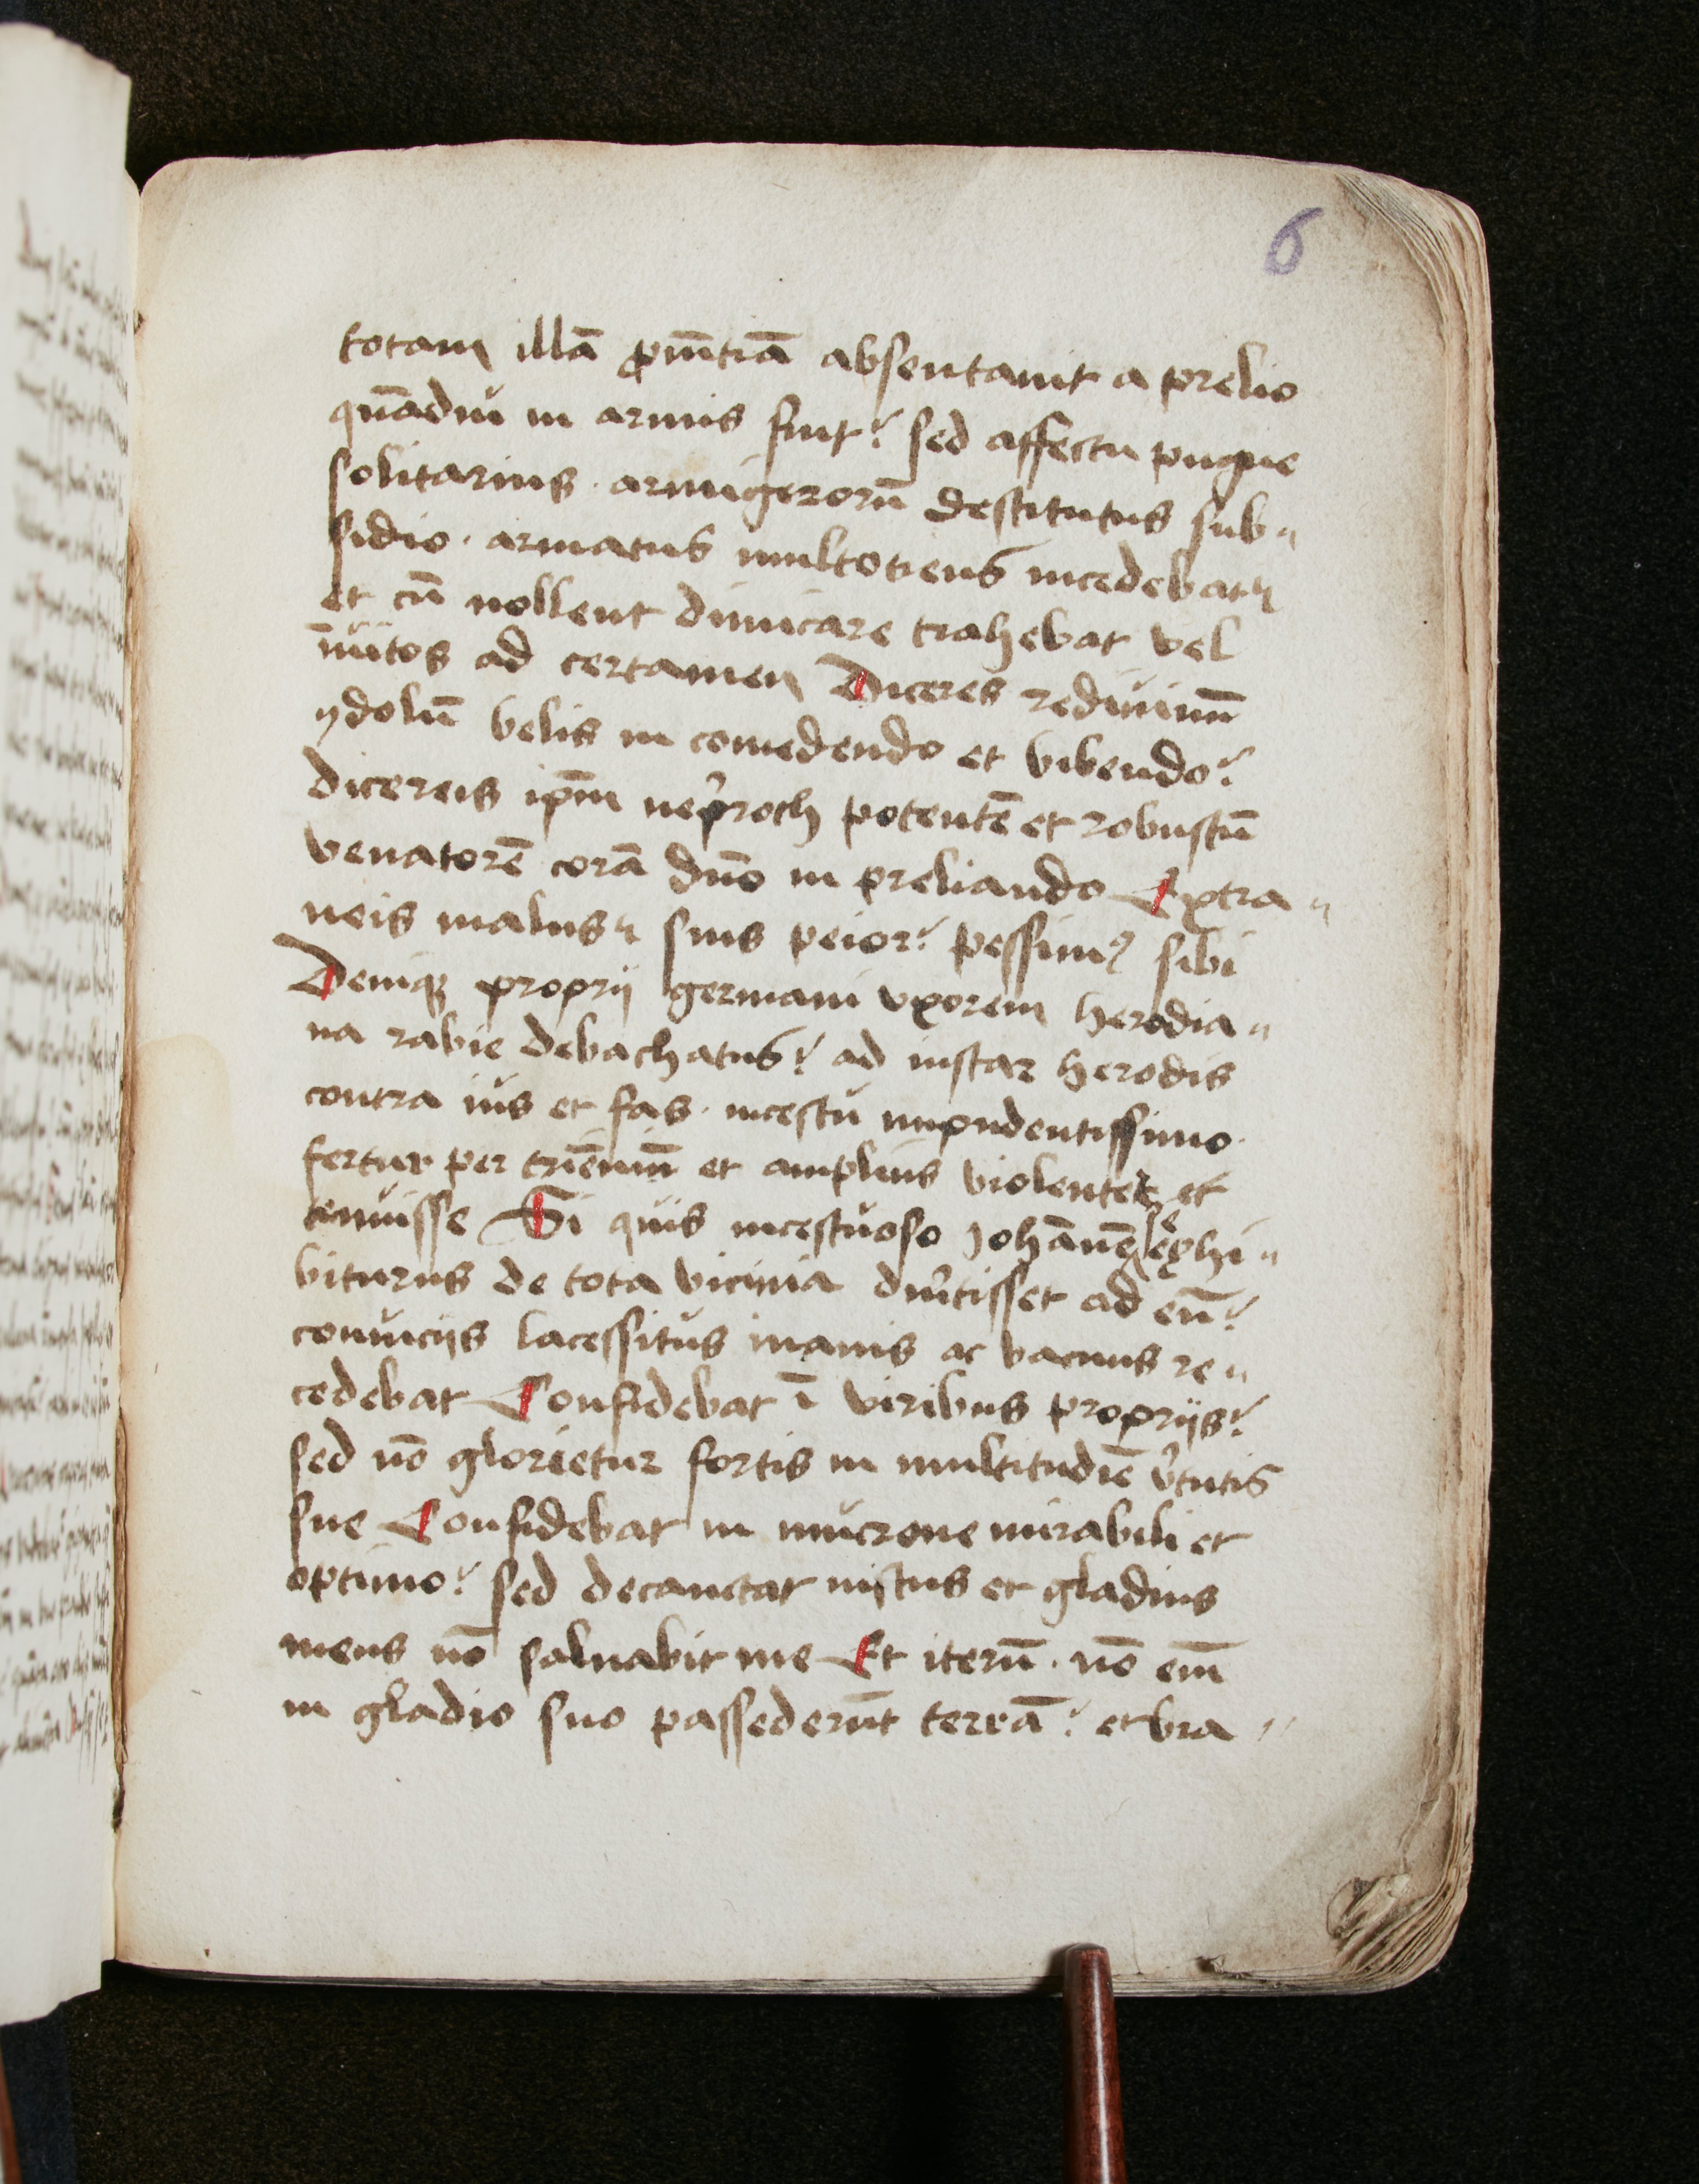 6
totam illā ꝓuītiā absentauit a prelio
quādiu in armis fuit? sed affectu pugne
solitarius · armigerorū destitutus sub〃
sidio · armatus multotiens incedebat
et cū nollent dimicare trahebat vel
īuitos ad certamen Diceres rediuiuū
ydolū belis in comedendo et bibendo?
dicereis ip̄m neproth potentē et robustū
venatorē corā dn̄o in preliando Extra〃
neis malus suis peior? pessimꝰ sibi
Deniqꝫ proprij germani vxorem herodia〃
na rabie debachatus? ad instar herodis
contra ius et fas · incestu impudentissimo ·
fertur per triēniū et amplius violenter et
tenuisse Si quis incestuoso Johānē se exhi〃
biturus de tota vicinia diūtisset ad eū?
conuicijs lacessitus inanis ac vacuus re〃
cedebat Confidebat ī viribus proprijs?
sed nō glorietur fortis in multitudiē v̄tutis
sue Confidebat in mucrone mirabili et
optimo? sed decantat iustus et gladius
meus nō saluabit me Et iterū · nō em̄
in gladio suo possederūt terrā? et bra〃